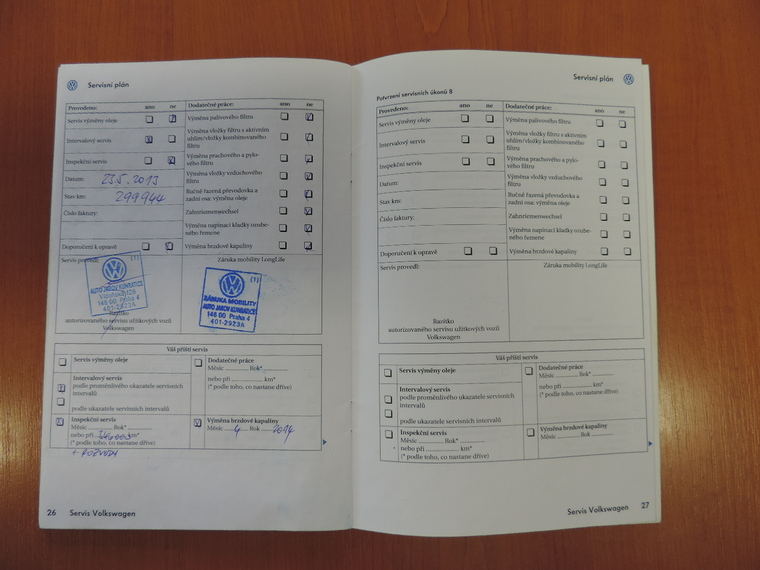 Servisní plán
Provedeno: ano ne
Servis výměny oleje
Intervalový servis
Inspekční servis
Datum: 23.5.2013
Stav km: 299944
Číslo faktury:
Doporučení k opravě
Dodatečné práce: ano ne
Výměna palivového filtru
Výměna vložky filtru s aktivním
uhlím/vložky kombinovaného
filtru
Výměna prachového a pylo-
vého filtru
Výměna vložky vzduchového
filtru
Ručně řazená převodovka a
zadní osa: výměna oleje
Zahnriemenwechsel
Výměna napínací kladky ozube-
ného řemene
Výměna brzdové kapaliny
Servis provedl:
(1)
AUTO JAROV KUNRATICE
148 00 Praha 4
401-2923A
Razítko
autorizovaného servisu užitkových vozů
Volkswagen
Záruka mobility LongLife
(1)
ZÁRUKA MOBILITY
AUTO JAROV KUNRATICE
148 00 Praha 4
401-2923A
Váš příští servis
Servis výměny oleje
Intervalový servis
podle proměnlivého ukazatele servisních
intervalů
podle ukazatele servisních intervalů
Inspekční servis
Měsíc Rok*
nebo při km*
(* podle toho, co nastane dříve)
+ ROZVODY
Dodatečné práce
Měsíc Rok*
nebo při km*
(* podle toho, co nastane dříve)
Výměna brzdové kapaliny
Měsíc 4 Rok 2014
26 Servis Volkswagen
Servisní plán
Potvrzení servisních úkonů 8
Provedeno: ano ne
Servis výměny oleje
Intervalový servis
Inspekční servis
Datum:
Stav km:
Číslo faktury:
Doporučení k opravě
Dodatečné práce: ano ne
Výměna palivového filtru
Výměna vložky filtru s aktivním
uhlím/vložky kombinovaného
filtru
Výměna prachového a pylo-
vého filtru
Výměna vložky vzduchového
filtru
Ručně řazená převodovka a
zadní osa: výměna oleje
Zahnriemenwechsel
Výměna napínací kladky ozube-
ného řemene
Výměna brzdové kapaliny
Servis provedl:
Razítko
autorizovaného servisu užitkových vozů
Volkswagen
Záruka mobility LongLife
Váš příští servis
Servis výměny oleje
Intervalový servis
podle proměnlivého ukazatele servisních
intervalů
podle ukazatele servisních intervalů
Inspekční servis
Měsíc Rok*
nebo při km*
(* podle toho, co nastane dříve)
Dodatečné práce
Měsíc Rok*
nebo při km*
(* podle toho, co nastane dříve)
Výměna brzdové kapaliny
Měsíc Rok
Servis Volkswagen 27